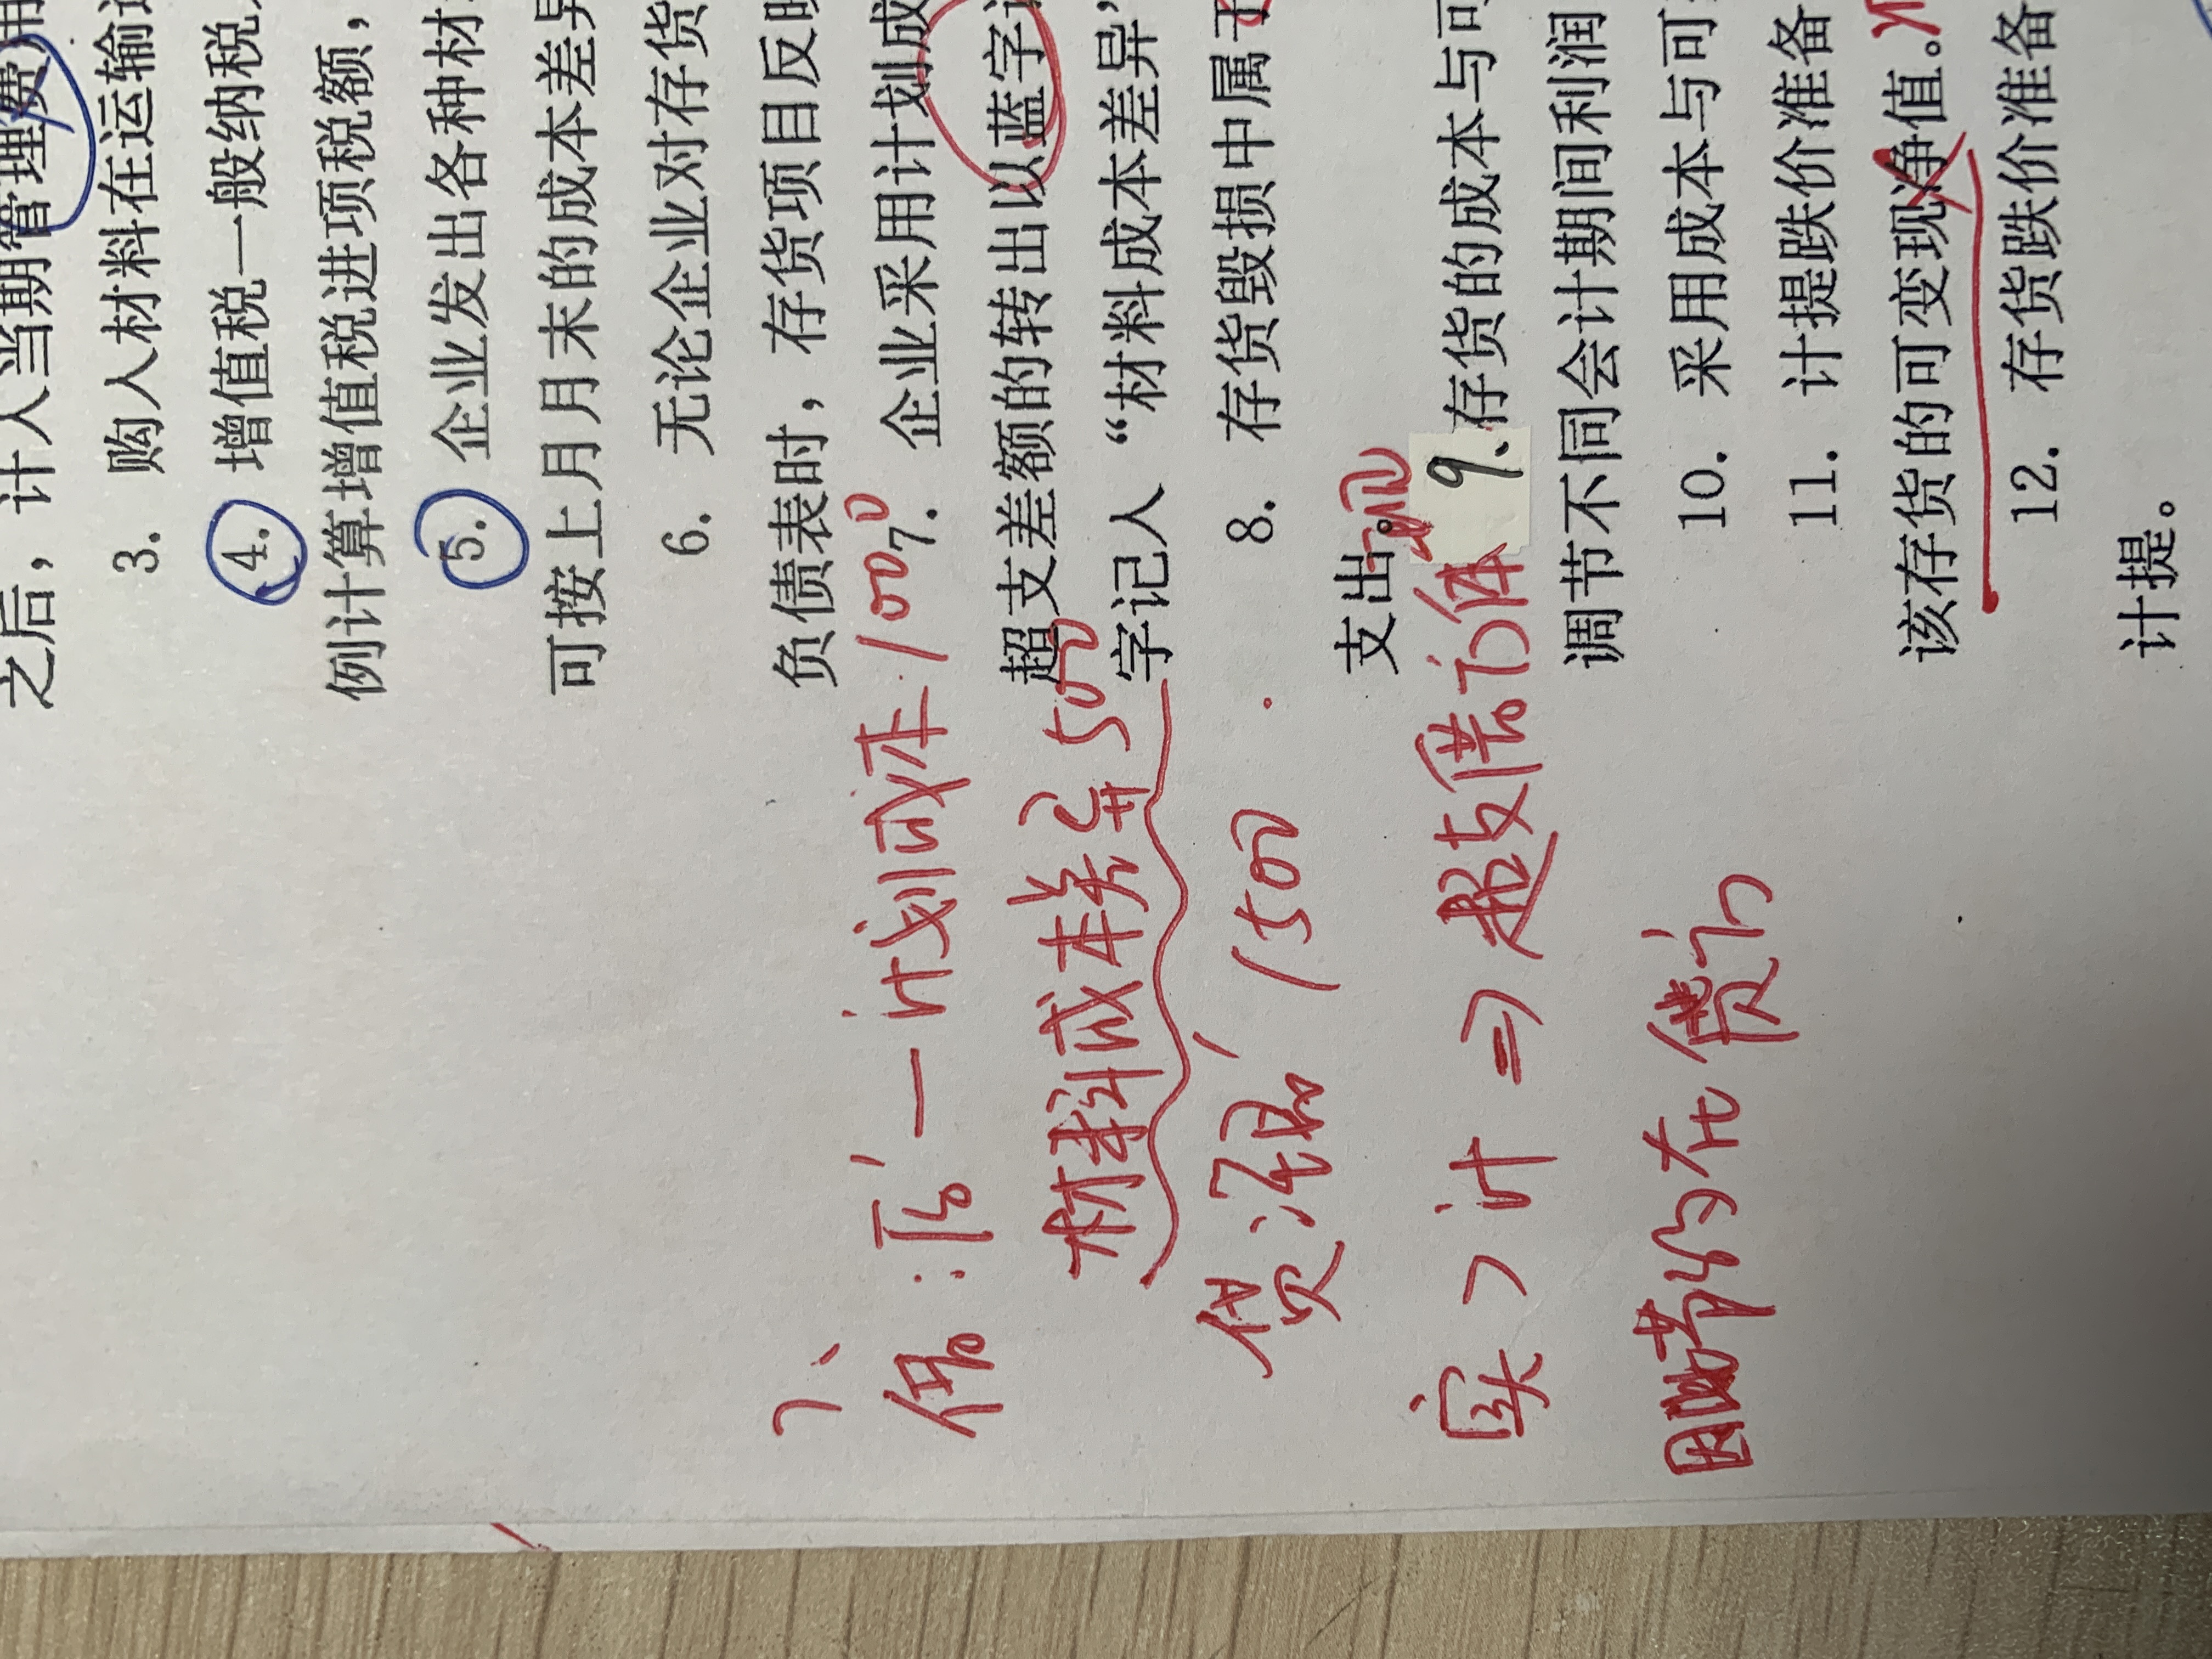 之后，计入当期管理费用
3. 购入材料在运输
4. 增值税一般纳税
例计算增值税进项税额，
5. 企业发出各种材
可按上月月末的成本差异
6. 无论企业对存货
负债表时，存货项目反映
7. 企业采用计划成
超支差额的转出以蓝字
字记入“材料成本差异”
8. 存货毁损中属于
支出。
9、存货的成本与可
调节不同会计期间利润
10. 采用成本与可
11. 计提跌价准备
该存货的可变现净值。
12. 存货跌价准备
计提。
7、
借：原—计划成本 1000
材料成本差异 500
贷：银 1500
实＞计 ⇒ 超支借记
都在贷记